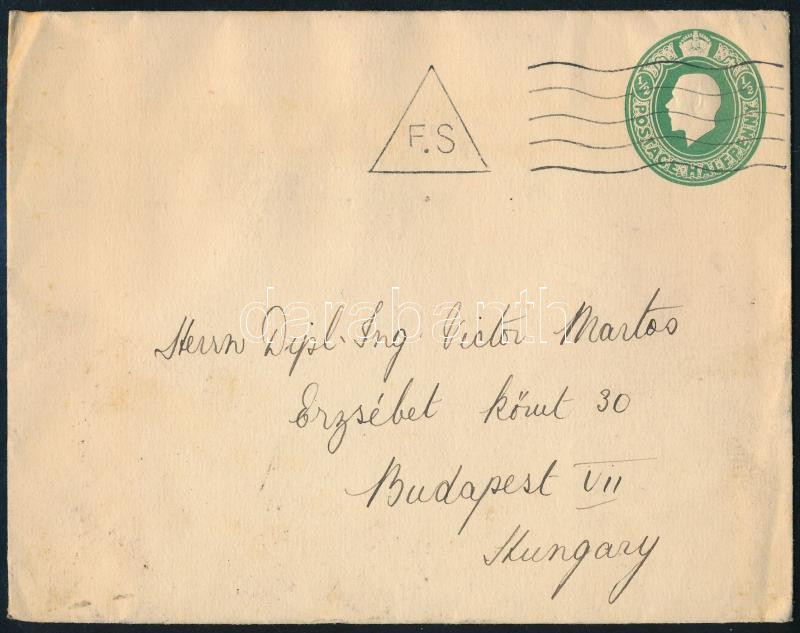 ½ POSTAGE HALFPENNY ½
F.S
darabanth
Herrn Dipl. Ing. Victor Martos
Erzsébet körut 30
Budapest VII
Hungary